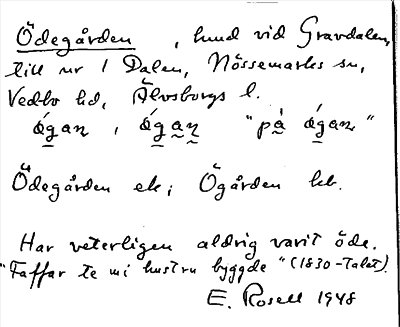 Ödegården, hund vid Gravdalen,
till nr 1 Dalen, Nössemarks sn,
Vedbo hd, Älvsborgs l.
ǿgan, ǿgaṇ "på ǿgan"
Ödegården ek; Ögården kb.
Har veterligen aldrig varit öde.
"Faffar te mi hustru byggde" (1830-talet).
E. Rosell 1948